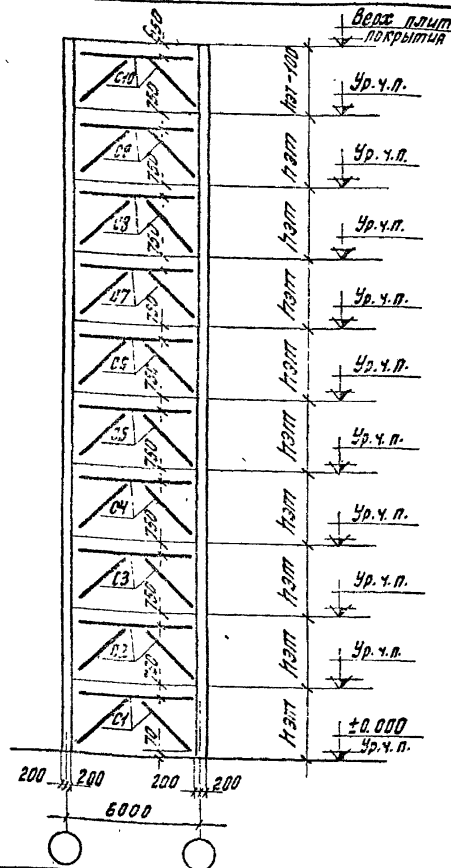 Верх плит
покрытия
650
С10
750
hэт-100
Ур.ч.п.
С9
750
hэт
Ур.ч.п.
С8
750
hэт
Ур.ч.п.
С7
750
hэт
Ур.ч.п.
750
hэт
Ур.ч.п.
С5
750
hэт
Ур.ч.п.
С4
750
hэт
Ур.ч.п.
С3
750
hэт
Ур.ч.п.
С2
750
hэт
Ур.ч.п.
С1
70
hэт
±0.000
Ур.ч.п.
200 200 200 200
6000